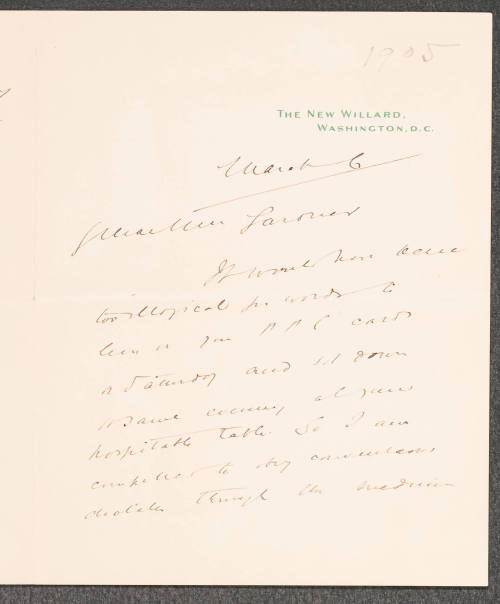 1905
THE NEW WILLARD,
WASHINGTON, D.C.
March 6
Dear Mrs Gardner
It would have been
too illogical for words to
leave on you P P C cards
on Saturday and sit down
same evening at your
hospitable table. So I am
compelled to obey
through the medium